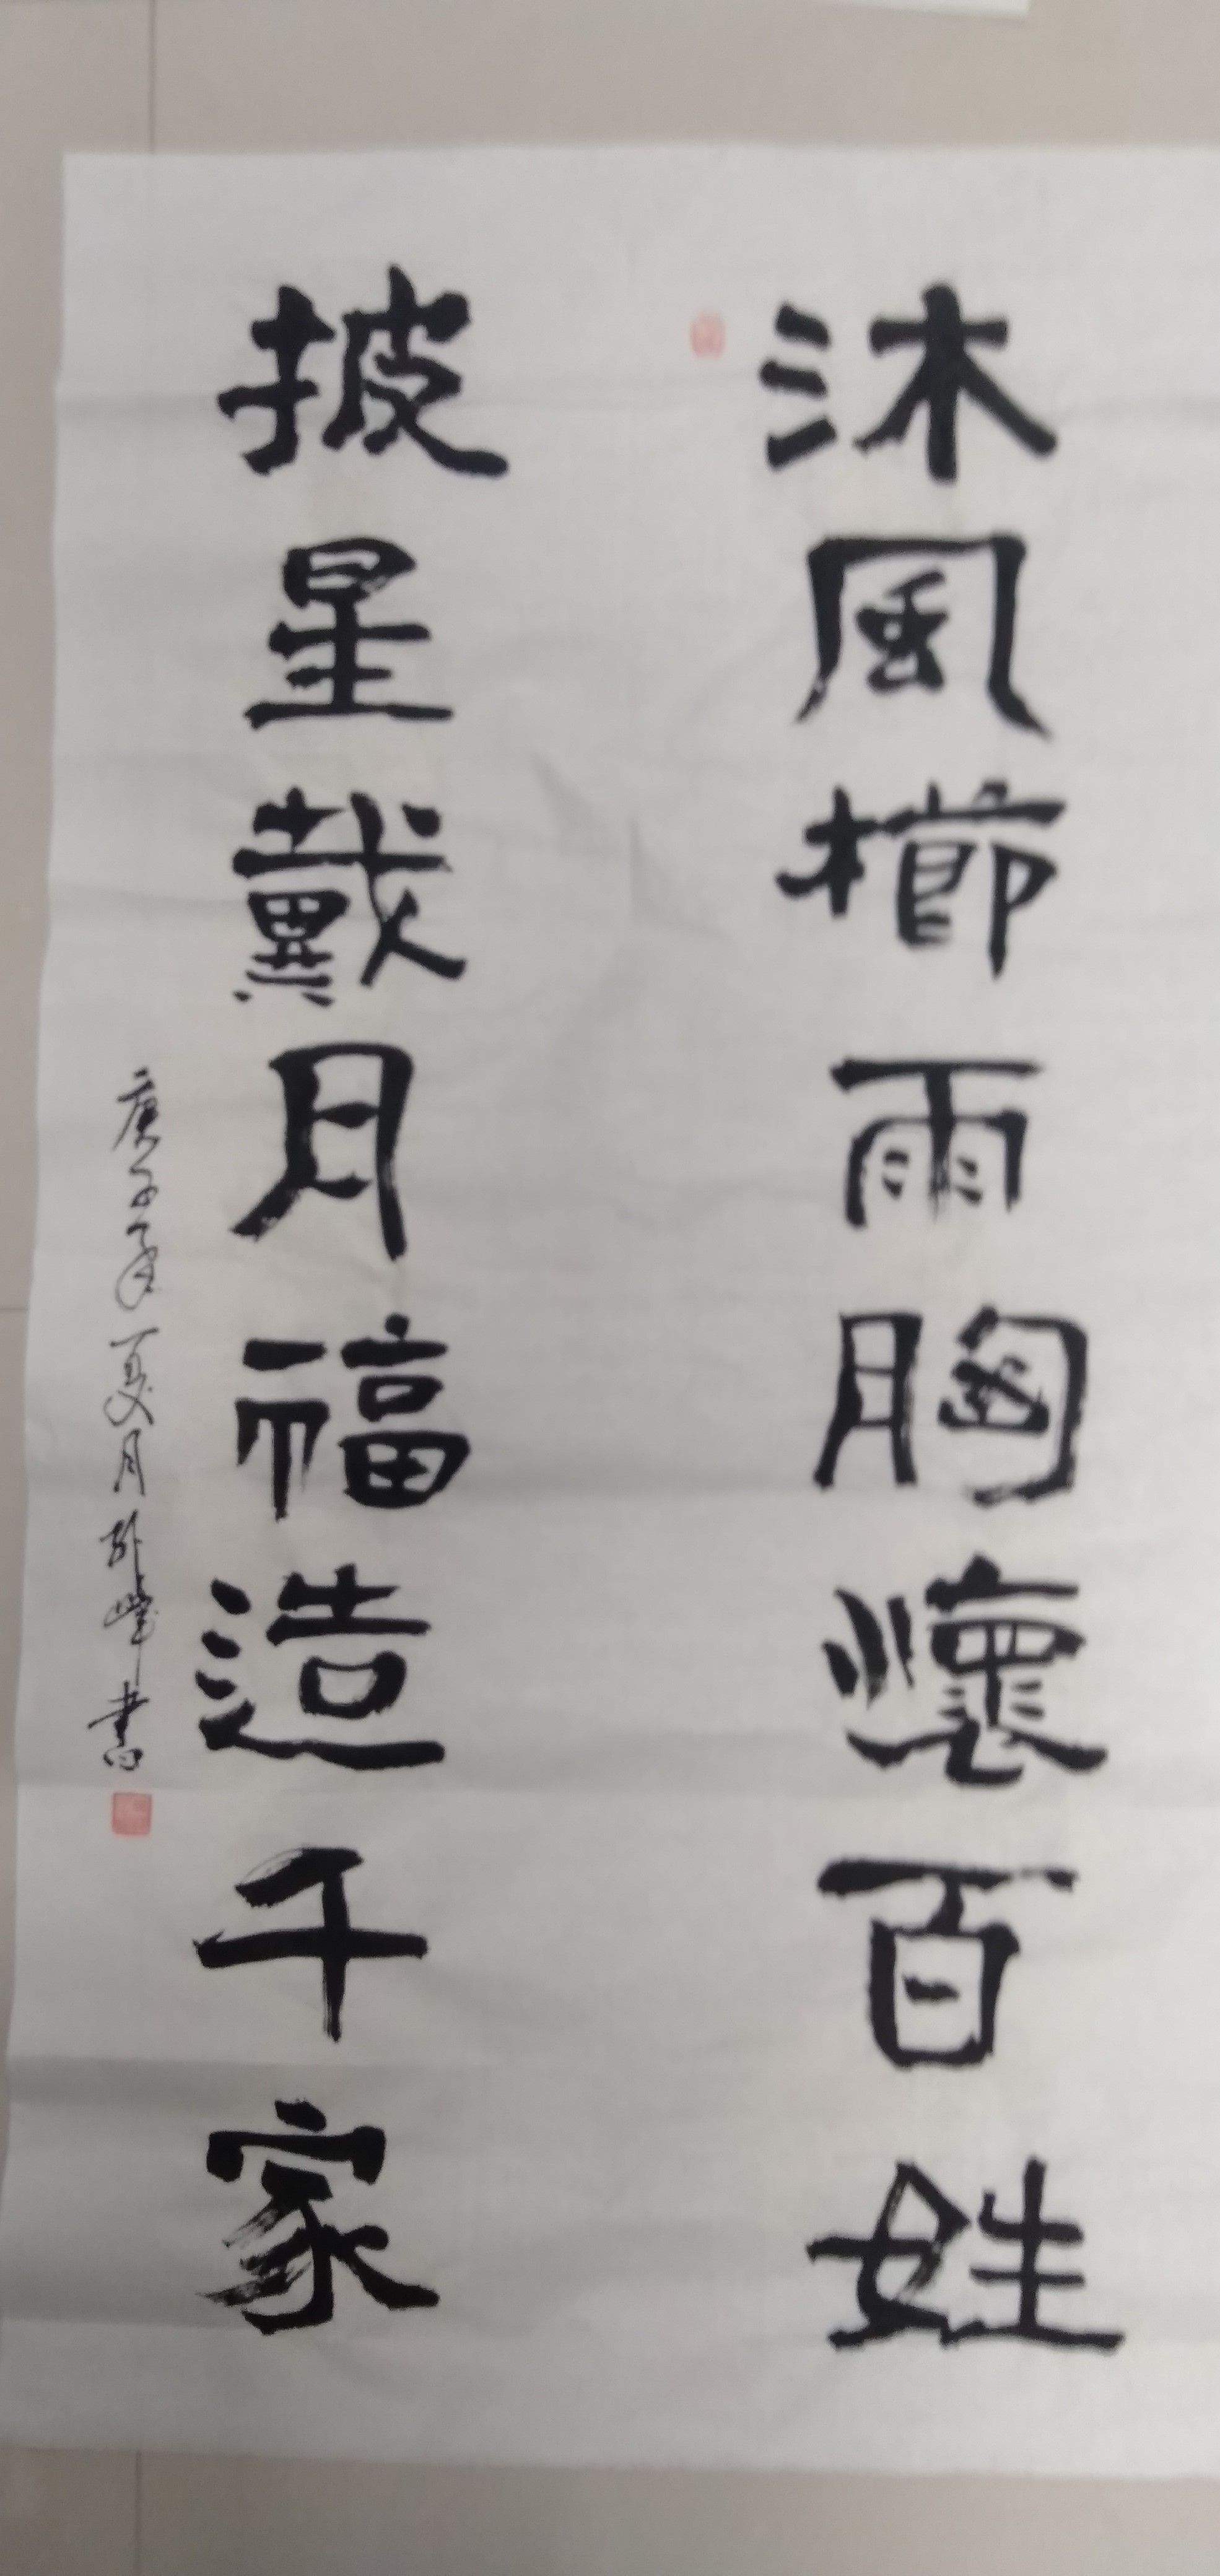 沐風櫛雨胸懷百姓
披星戴月福造千家
庚子年夏月 峰書